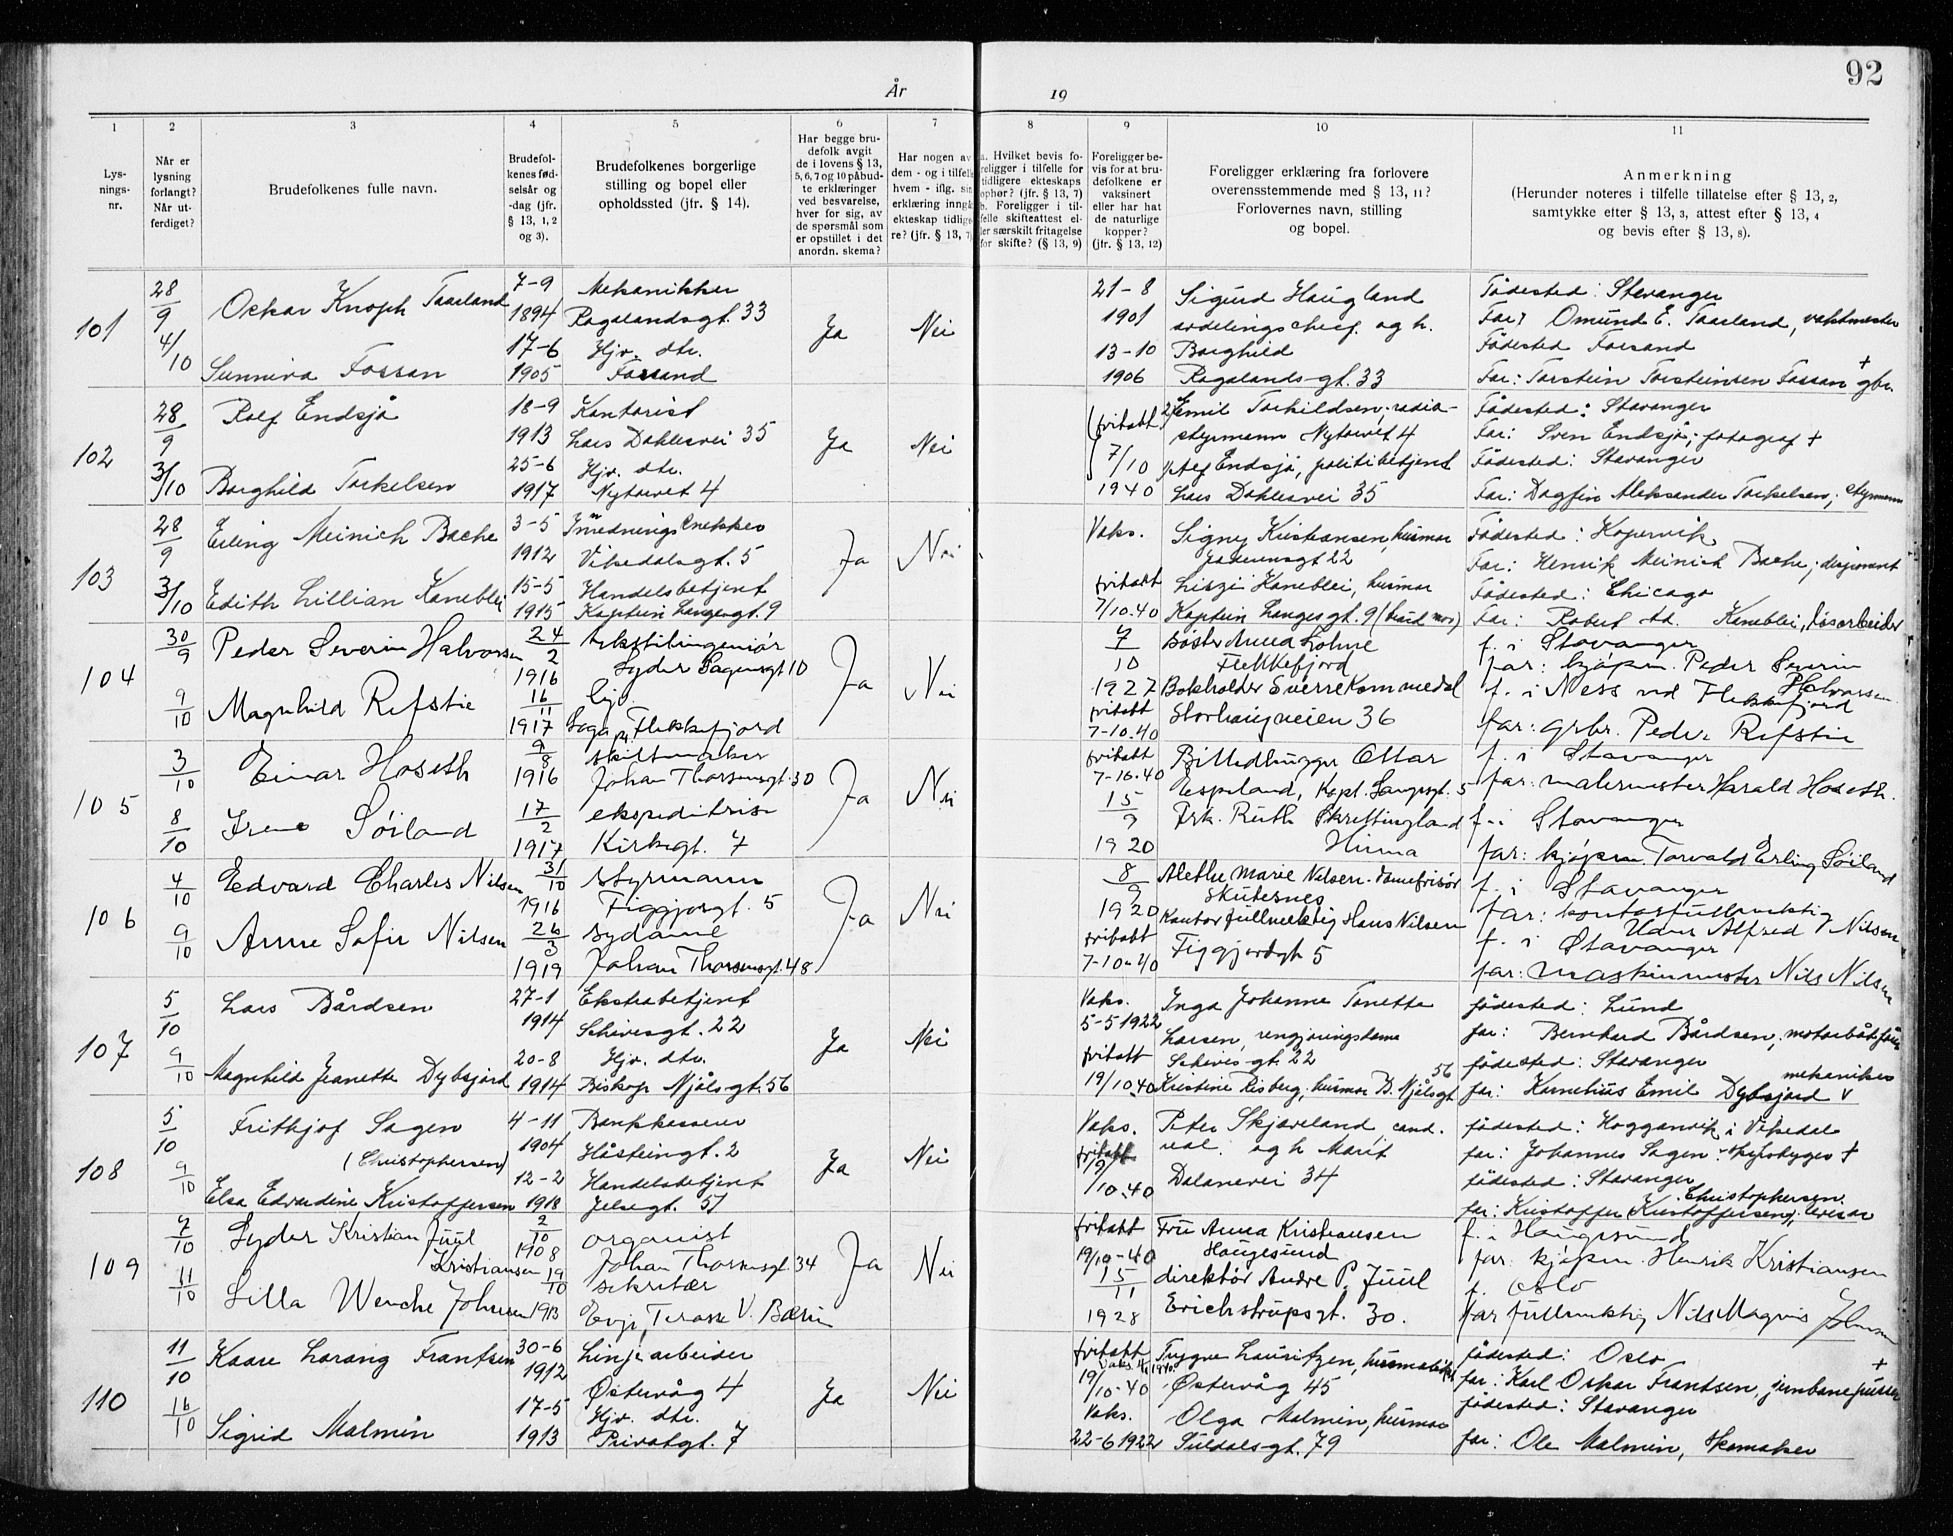 92
År 19
1 2 3 4 5 6 7 8 9 10 11
Lys-
nings-
nr.
Når er
lysning
forlangt?
Når ut-
ferdiget?
Brudefolkenes fulle navn.
Brudefol-
kenes fød-
selsår og
-dag (jfr.
§ 13, 1, 2
og 3).
Brudefolkenes borgerlige
stilling og bopel eller
opholdssted (jfr. § 14).
Har begge bru-
defolk avgit
de i lovens § 13,
5, 6, 7 og 10 påbud-
te erklæringer
ved besvarelse,
hver for sig, av
de spørsmål som
er opstillet i det
anordn. skema?
Har nogen av
dem - og i tilfelle
hvem - iflg. sin
erklæring inngå
ekteskap tidlige-
re? (jfr. § 13, 7)
a. Hvilket bevis fo-
religger i tilfelle for
tidligere ekteskaps
ophør? (jfr. § 13, 7)
b. Foreligger i til-
felle skifteattest el-
ler særskilt fritagelse
for skifte? (§ 13, 9)
Foreligger be-
vis for at bru-
defolkene er
vaksinert
eller har hat
de naturlige
kopper?
(jfr. § 13, 12)
Foreligger erklæring fra forlovere
overensstemmende med § 13, 11?
Forlovernes navn, stilling
og bopel.
Anmerkning
(Herunder noteres i tilfelle tillatelse efter § 13, 2,
samtykke efter § 13, 3, attest efter § 13, 4
og bevis efter § 13, 8).
101
28/9
4/10
Oskar Knoph Taarland
Sunniva Fossan
7-9
1894
17-6
1905
Mekanikker
Rogalandsgt. 33
Hjv. dtr.
Forsand
Ja
Nei
21-8
1901
13-10
1906
Sigurd Haugland
avdelingschef og h.
Borghild
Rogalandsgt. 33
Fødested: Stavanger
Far: Omund E. Taarland, vaktmester
Fødested Forsand
Far: Torstein Torsteinsen Fossan + gbr.
102
28/9
3/10
Rolf Endsjø
Borghild Torkelsen
18-9
1913
25-6
1917
Kontorist
Lars Dahlesvei 35
Hjv. dtr.
Nytorvet 4
Ja
Nei
fritatt
7/10
1940
2) Emil Torkildsen, radio-
styrmann Nytorvet 4
1) Alf Endsjø, politibetjent
Lars Dahlesvei 35
Fødested: Stavanger
Far: Sven Endsjø; fotograf +
Fødested: Stavanger
Far: Dagfin Aleksander Torkelsen, styrmann
103
28/9
3/10
Erling Meinich Bache
Edith Lillian Kaneblei
3-5
1912
15-5
1915
Innrednings snekker
Vikedalsgt. 5
Handelsbetjent
Kaptein Langesgt. 9
Ja
Nei
Vaks.
fritatt
7/10.40
Signy Kristiansen, husmor
22
Liszi Kaneblei, husmor
Kaptein Langes gt. 9 (brud mor)
Fødested: Kopervik
Far: Henrik Meinich Bache; disponent
Fødested: Chicago
Far: Robert Ad. Kaneblei, løsarbeider
104
30/9
9/10
Peder Severin Halvorsen
Magnhild Refstie
24/2
1916
16/11
1917
tekstilingeniør
Lyder Sagensgt 10
hjv.
Loga pr. Flekkefjord
Ja
Nei
7/10
1927
fritatt
7-10.40
Søster Anna
Flekkefjord
Bokholder Sverre Kommedal
Storhaugveien 36
f. i Stavanger
far: kjøpm. Peder Severin
Halvorsen
f. i Ness ved Flekkefjord
far: grbr. Peder Refstie
105
3/10
8/10
Einar Hoseth
Irene Søiland
9/8
1916
17/2
1917
skiltmaker
Johan Thorsensgt. 30
ekspeditrise
Kirkegt. 7
Ja
Nei
fritatt
7-10.40
15/9
1920
Billedhugger Ottar
Espeland, Kapt. Langesgt. 5
Frk. Ruth Skrettingland
Hinna
f. i Stavanger
far: malermester Harald Hoseth.
f. i Stavanger
far: kjøpm. Torvald Erling Søiland
106
4/10
9/10
Edvard Charles Nilsen
Anne Sofie Nilsen
31/10
1916
26/3
1919
styrmann
Figgjogt. 5
sydame
Johan Thorsensgt. 48
Ja
Nei
8/9
1920
fritatt
7-10-40
Alethe Marie Nilsen. damefrisør
Skutesnes
Kontorfullmektig Hans Nilsen
Figgjodgt 5
f. i Stavanger
far: kontorfullmektig
Hans Alfred Nilsen
f. i Stavanger
far: maskinmester Nils Nilsen
107
5/10
9/10
Lars Bårdsen
Magnhild Jeanette Dybsjord
27-1
1914
20-8
1914
Ekstrabetjent
Schivesgt. 22
Hjv. dtr.
Biskop Njålsgt. 56
Ja
Nei
Vaks.
5-5 1922
fritatt
19/10.40
Inga Johanne Tonette
Larsen, rengjøringsdame
Schives gt. 22
Kristine Risberg, husmor B. Njålsgt 56
fødested: Lund
far: Bernhard Bårdsen, motorbåtfører
fødested: Stavanger
mekaniker
far: Kornelius Emil Dybsjord
108
5/10
9/10
Frithjof Sagen
(Christophersen)
Elsa Edvardine Kristoffersen
4-11
1904
12-2
1918
Bankkasserer
Håsteingt. 2
Handelsbetjent
Jelsegt. 51
Ja
Nei
Vaks.
fritatt
19/10.40
Peter Skjæveland cand.
real. og h Marit
Dalanevei 34
fødested: Hogganvik i Vikedal
far: Johannes Sagen skipsbygger +
fødested: Stavanger
Christophersen
far: Kristoffer (Kristoffersen), revisor
109
7/10
11/10
Lyder Kristian Juul
Kristiansen
Lilla Wenche Johnsen
2/10
1908
19/10
1913
organist
Johan Thorsensgt. 34
sekretær
Evje, Terasse V. Bærum
Ja
Nei
fritatt
19/10-40
15/11
1928
Fru Anna Kristiansen
Haugesund
direktør Andre P. Juul
Erichstrupsgt. 30.
f. i Haugesund
far: kjøpm. Henrik Kristiansen
f. Oslo
far fullmektig Nils Magnus Johnsen
110
11/10
16/10
Kaare Lorang Frantsen
Sigrid Malmin
30-6
1912
17-5
1913
Linjearbeider
Østervåg 4
Hjv. dtr.
Privatgt. 7
Ja
Nei
fritatt
19/10-40
Vaks.
22-6 1922
Trygve Lauritzen,
Østervåg 45
Olga Malmin, husmor
Suldalsgt. 79
fødested: Oslo
far: Karl Oskar Frantsen, +
fødested: Stavanger
far: Ole Malmin, skomaker